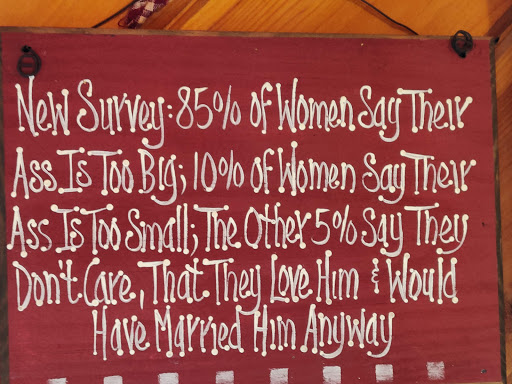 New Survey: 85% of Women Say Their
Ass Is Too Big; 10% of Women Say Their
Ass Is Too Small; The Other 5% Say They
Don't Care, That They Love Him & Would
Have Married Him Anyway